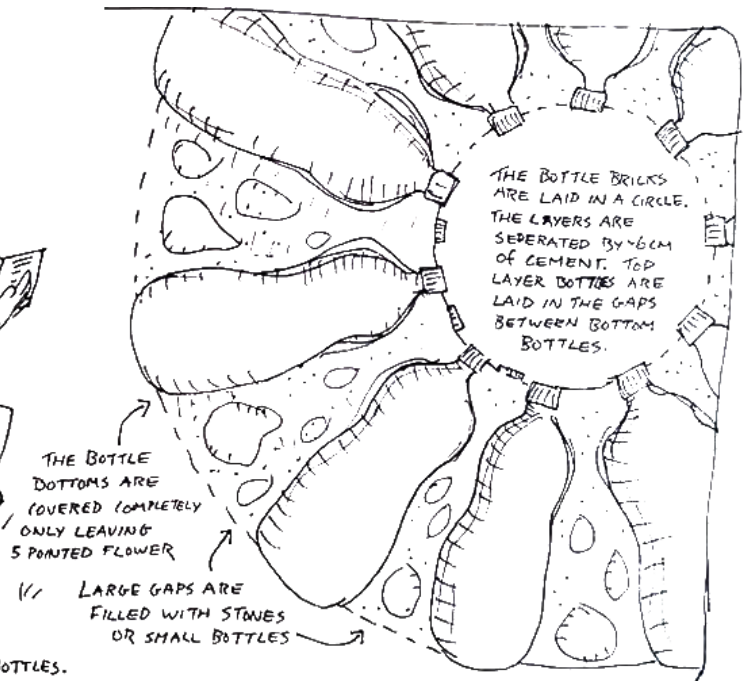 THE BOTTLE BRICKS
ARE LAID IN A CIRCLE.
THE LAYERS ARE
SEPERATED BY ~6CM
OF CEMENT. TOP
LAYER BOTTLES ARE
LAID IN THE GAPS
BETWEEN BOTTOM
BOTTLES.
THE BOTTLE
BOTTOMS ARE
COVERED COMPLETELY
ONLY LEAVING
5 POINTED FLOWER
LARGE GAPS ARE
FILLED WITH STONES
OR SMALL BOTTLES
OTTLES.